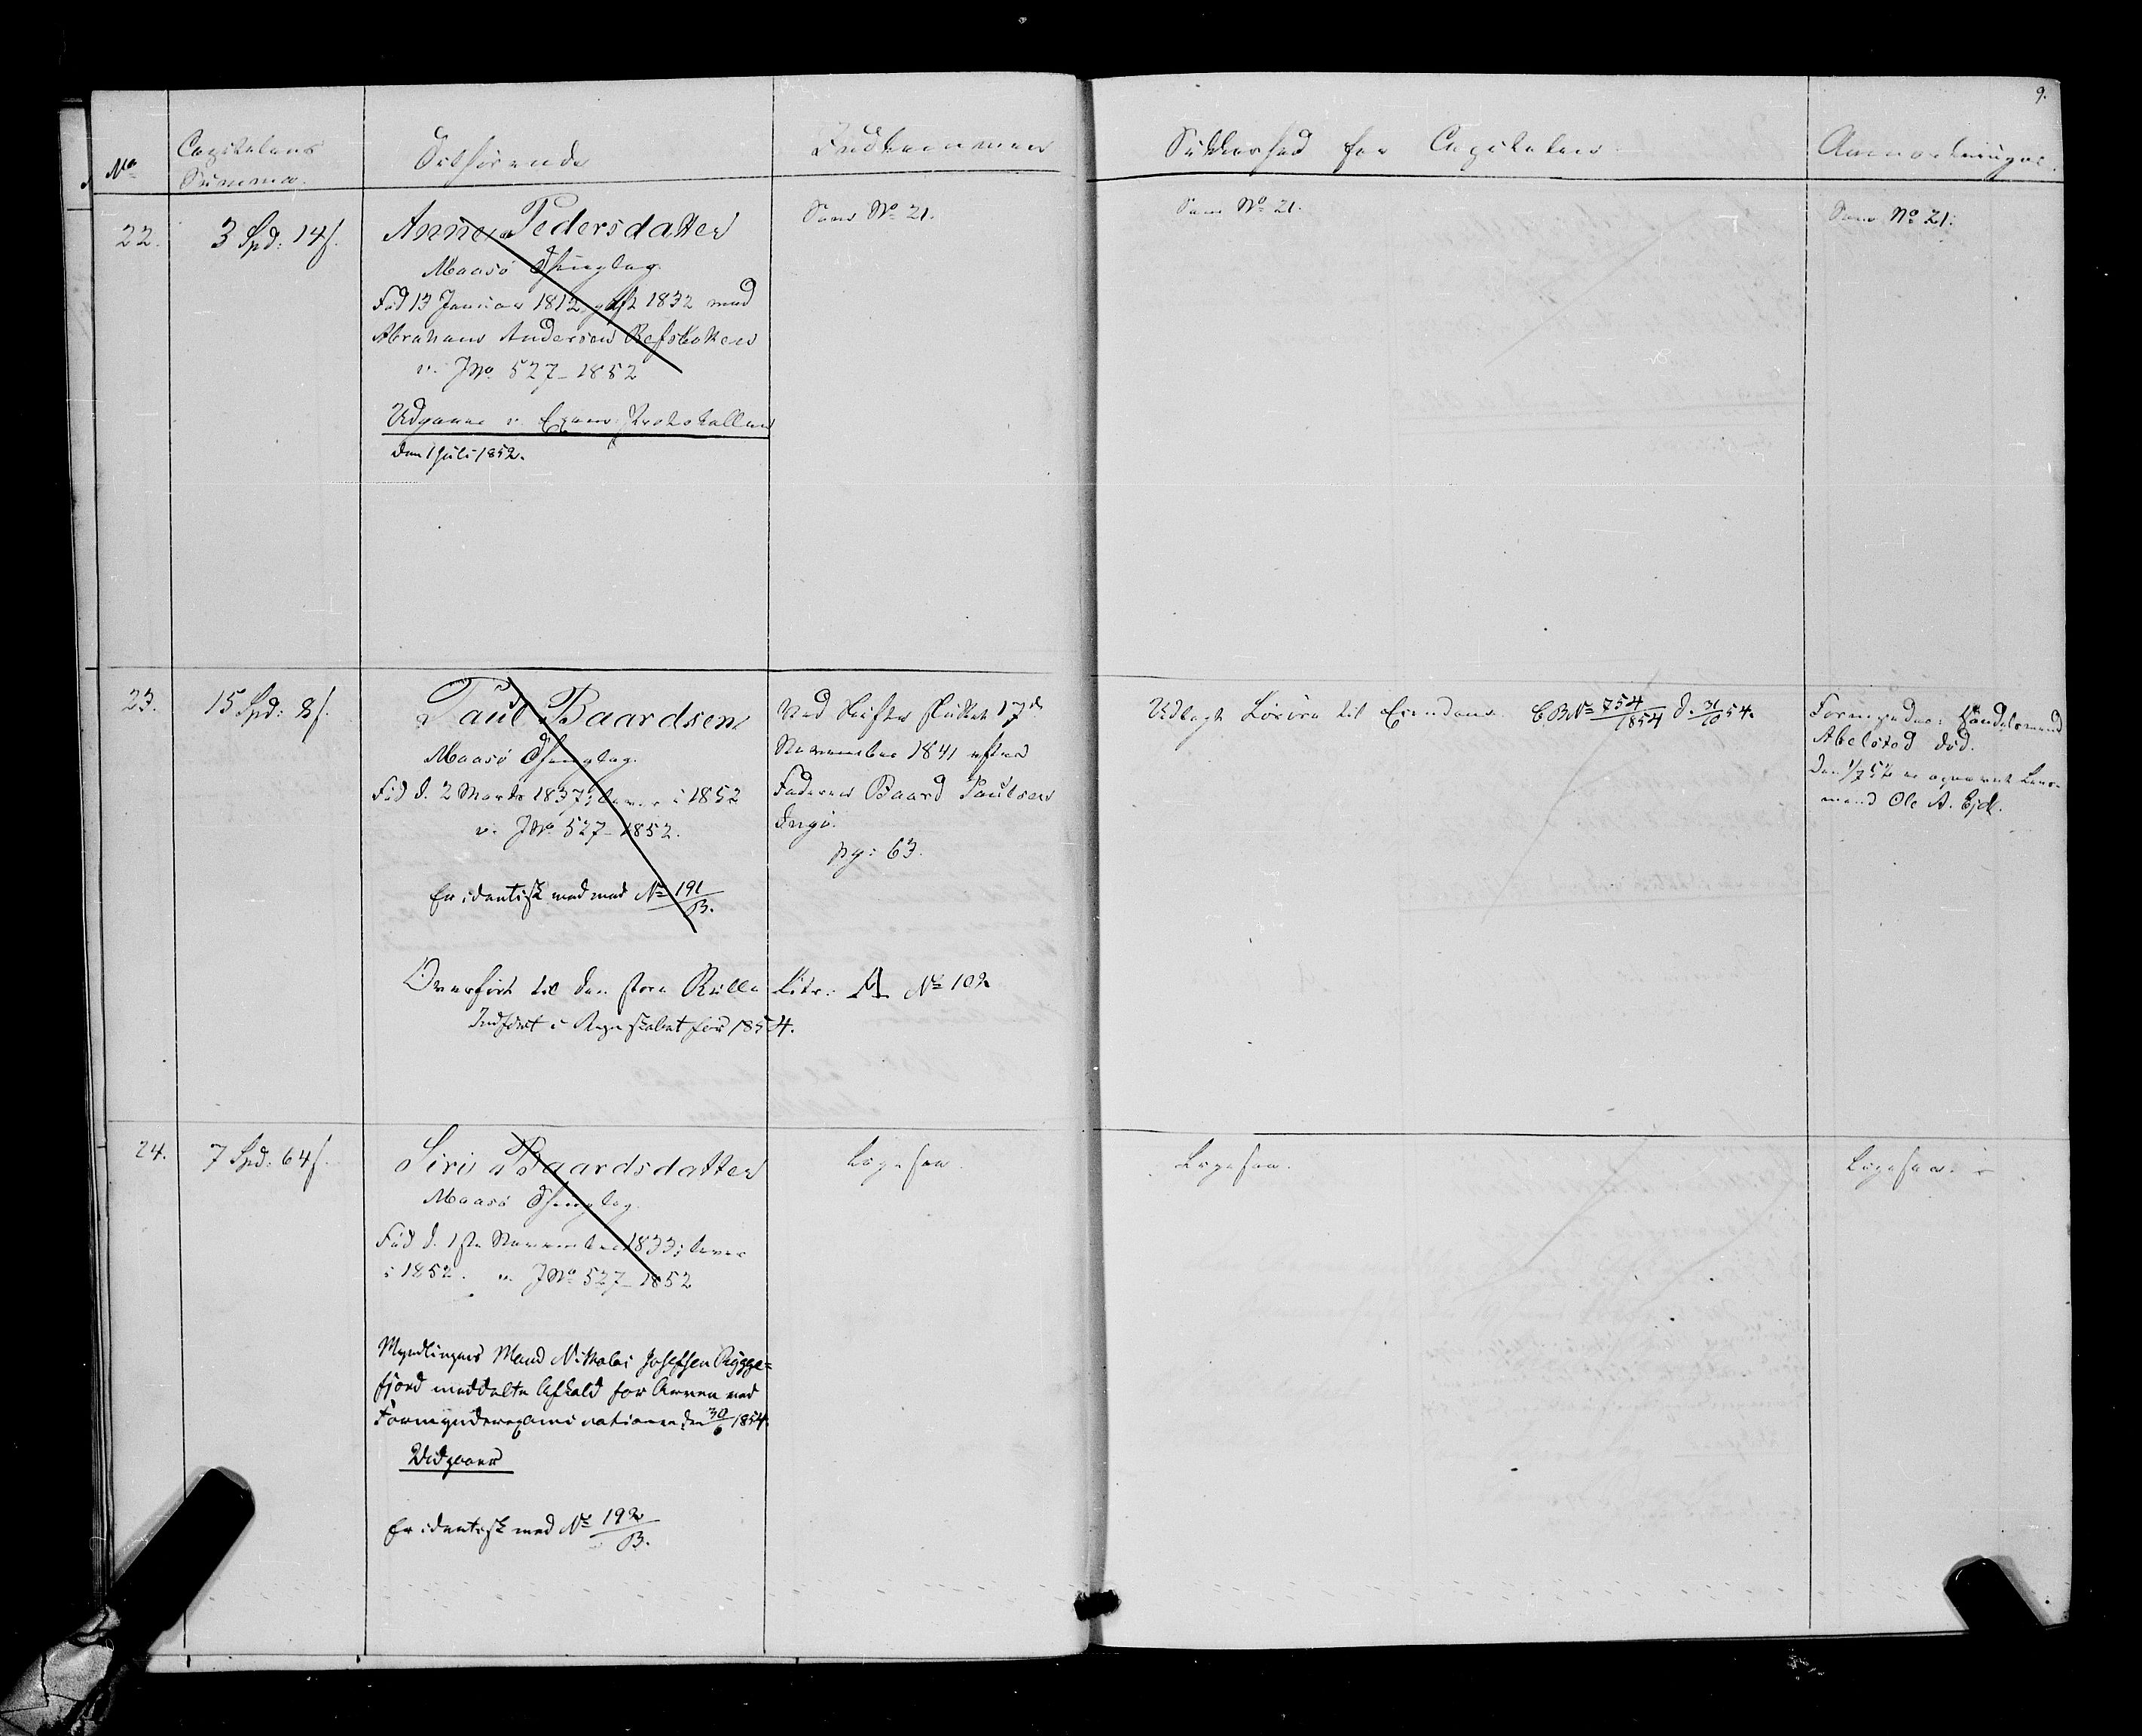 9.
No
Capitalens
Summa.
Tilhørende
Indkommen
Sikkerhed for Capitalen
Anmærkninger.
22.
3 Spd: 14 s.
Anne Pedersdatter
Maasø Thinglag.
Fød 13 Januar 1812, gift 1832 med
Abraham Andersen Refsbotten
v. JNo 527-1852
Udgaaer v. Exam. Protokollen
den 1 Juli 1852.
Som No 21.
Som No 21.
Som No 21.
23.
15 Spd: 8 s.
Paul Baardsen
Maasø Thinglag.
Fød d. 2 Marts 1837; lever i 1852
v. JNo 527-1852.
Er identisk med med No 191/B.
Overført til den store Rulle Litr: A No 102
Indført i Regnskabet for 1854.
Ved Skifte sluttet 17de
November 1841 efter
Faderen Baard Paulsen
Ingø.
pg: 63.
Udlagt Løsøre til Eiendom. CBNo 754/1854 d. 31/10 54.
Formynder: Handelsmand
Abelsted død.
Den 1/7 52 er opnævnt Lens-
mand Ole A. Ejdt.
24.
7 Spd: 64 s.
Siri Baardsdatter
Maasø Thinglag.
Fød d. 1ste November 1833; lever
i 1852. v. JNo 527-1852
Myndlingens Mand Nikolai Josefsen Rygge-
fjord meddelte Afkald for Arven ved
Formynderexaminationen den 30/6 1854.
Udgaaer
Er identisk med No 192/B.
Ligesaa.
Ligesaa.
Ligesaa.